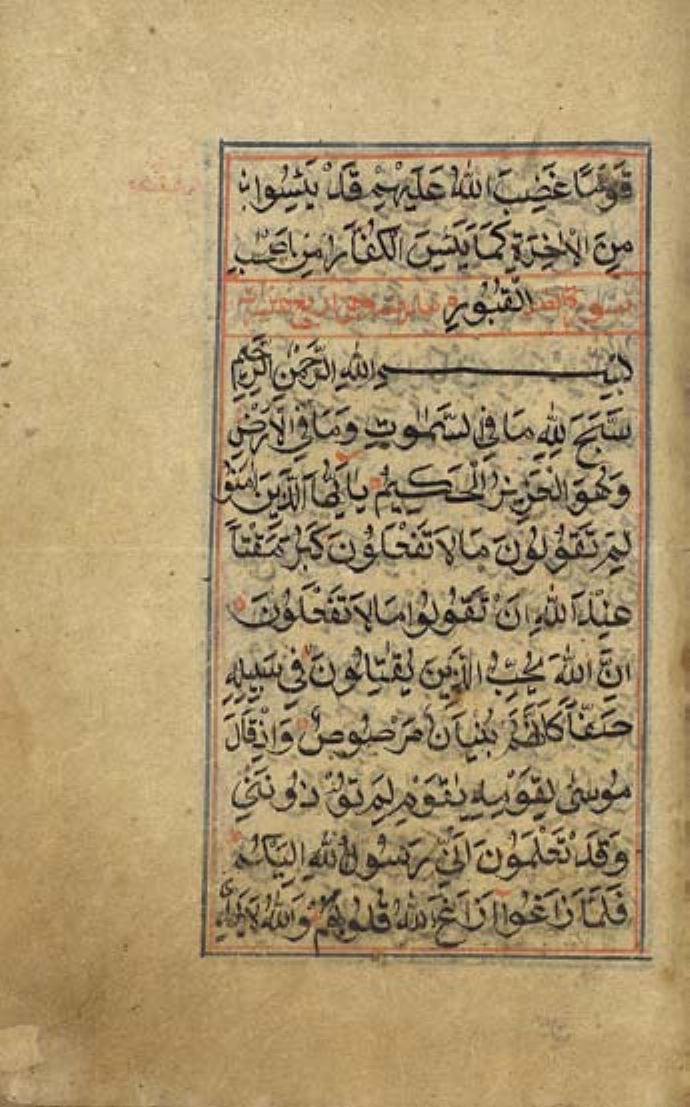 قَوْمًا غَضِبَ اللهُ عَلَيْهِمْ قَدْ يَئِسُوا
مِنَ الْاٰخِرَةِ كَمَا يَئِسَ الْكُفَّارُ مِنْ اَصْحٰبِ
الْقُبُورِ
بِسْمِ اللهِ الرَّحْمٰنِ الرَّحِيمِ
سَبَّحَ لِلّٰهِ مَا فِي السَّمٰوٰتِ وَمَا فِي الْاَرْضِ
وَهُوَ الْعَزِيزُ الْحَكِيمُ يَا اَيُّهَا الَّذِينَ اٰمَنُوا
لِمَ تَقُولُونَ مَا لَا تَفْعَلُونَ كَبُرَ مَقْتًا
عِنْدَ اللهِ اَنْ تَقُولُوا مَا لَا تَفْعَلُونَ
اِنَّ اللهَ يُحِبُّ الَّذِينَ يُقٰتِلُونَ فِي سَبِيلِهِ
صَفًّا كَاَنَّهُمْ بُنْيَانٌ مَرْصُوصٌ وَاِذْ قَالَ
مُوسٰى لِقَوْمِهِ يٰقَوْمِ لِمَ تُؤْذُونَنِي
وَقَدْ تَعْلَمُونَ اَنِّي رَسُولُ اللهِ اِلَيْكُمْ
فَلَمَّا زَاغُوا اَزَاغَ اللهُ قُلُوبَهُمْ وَاللهُ لَا